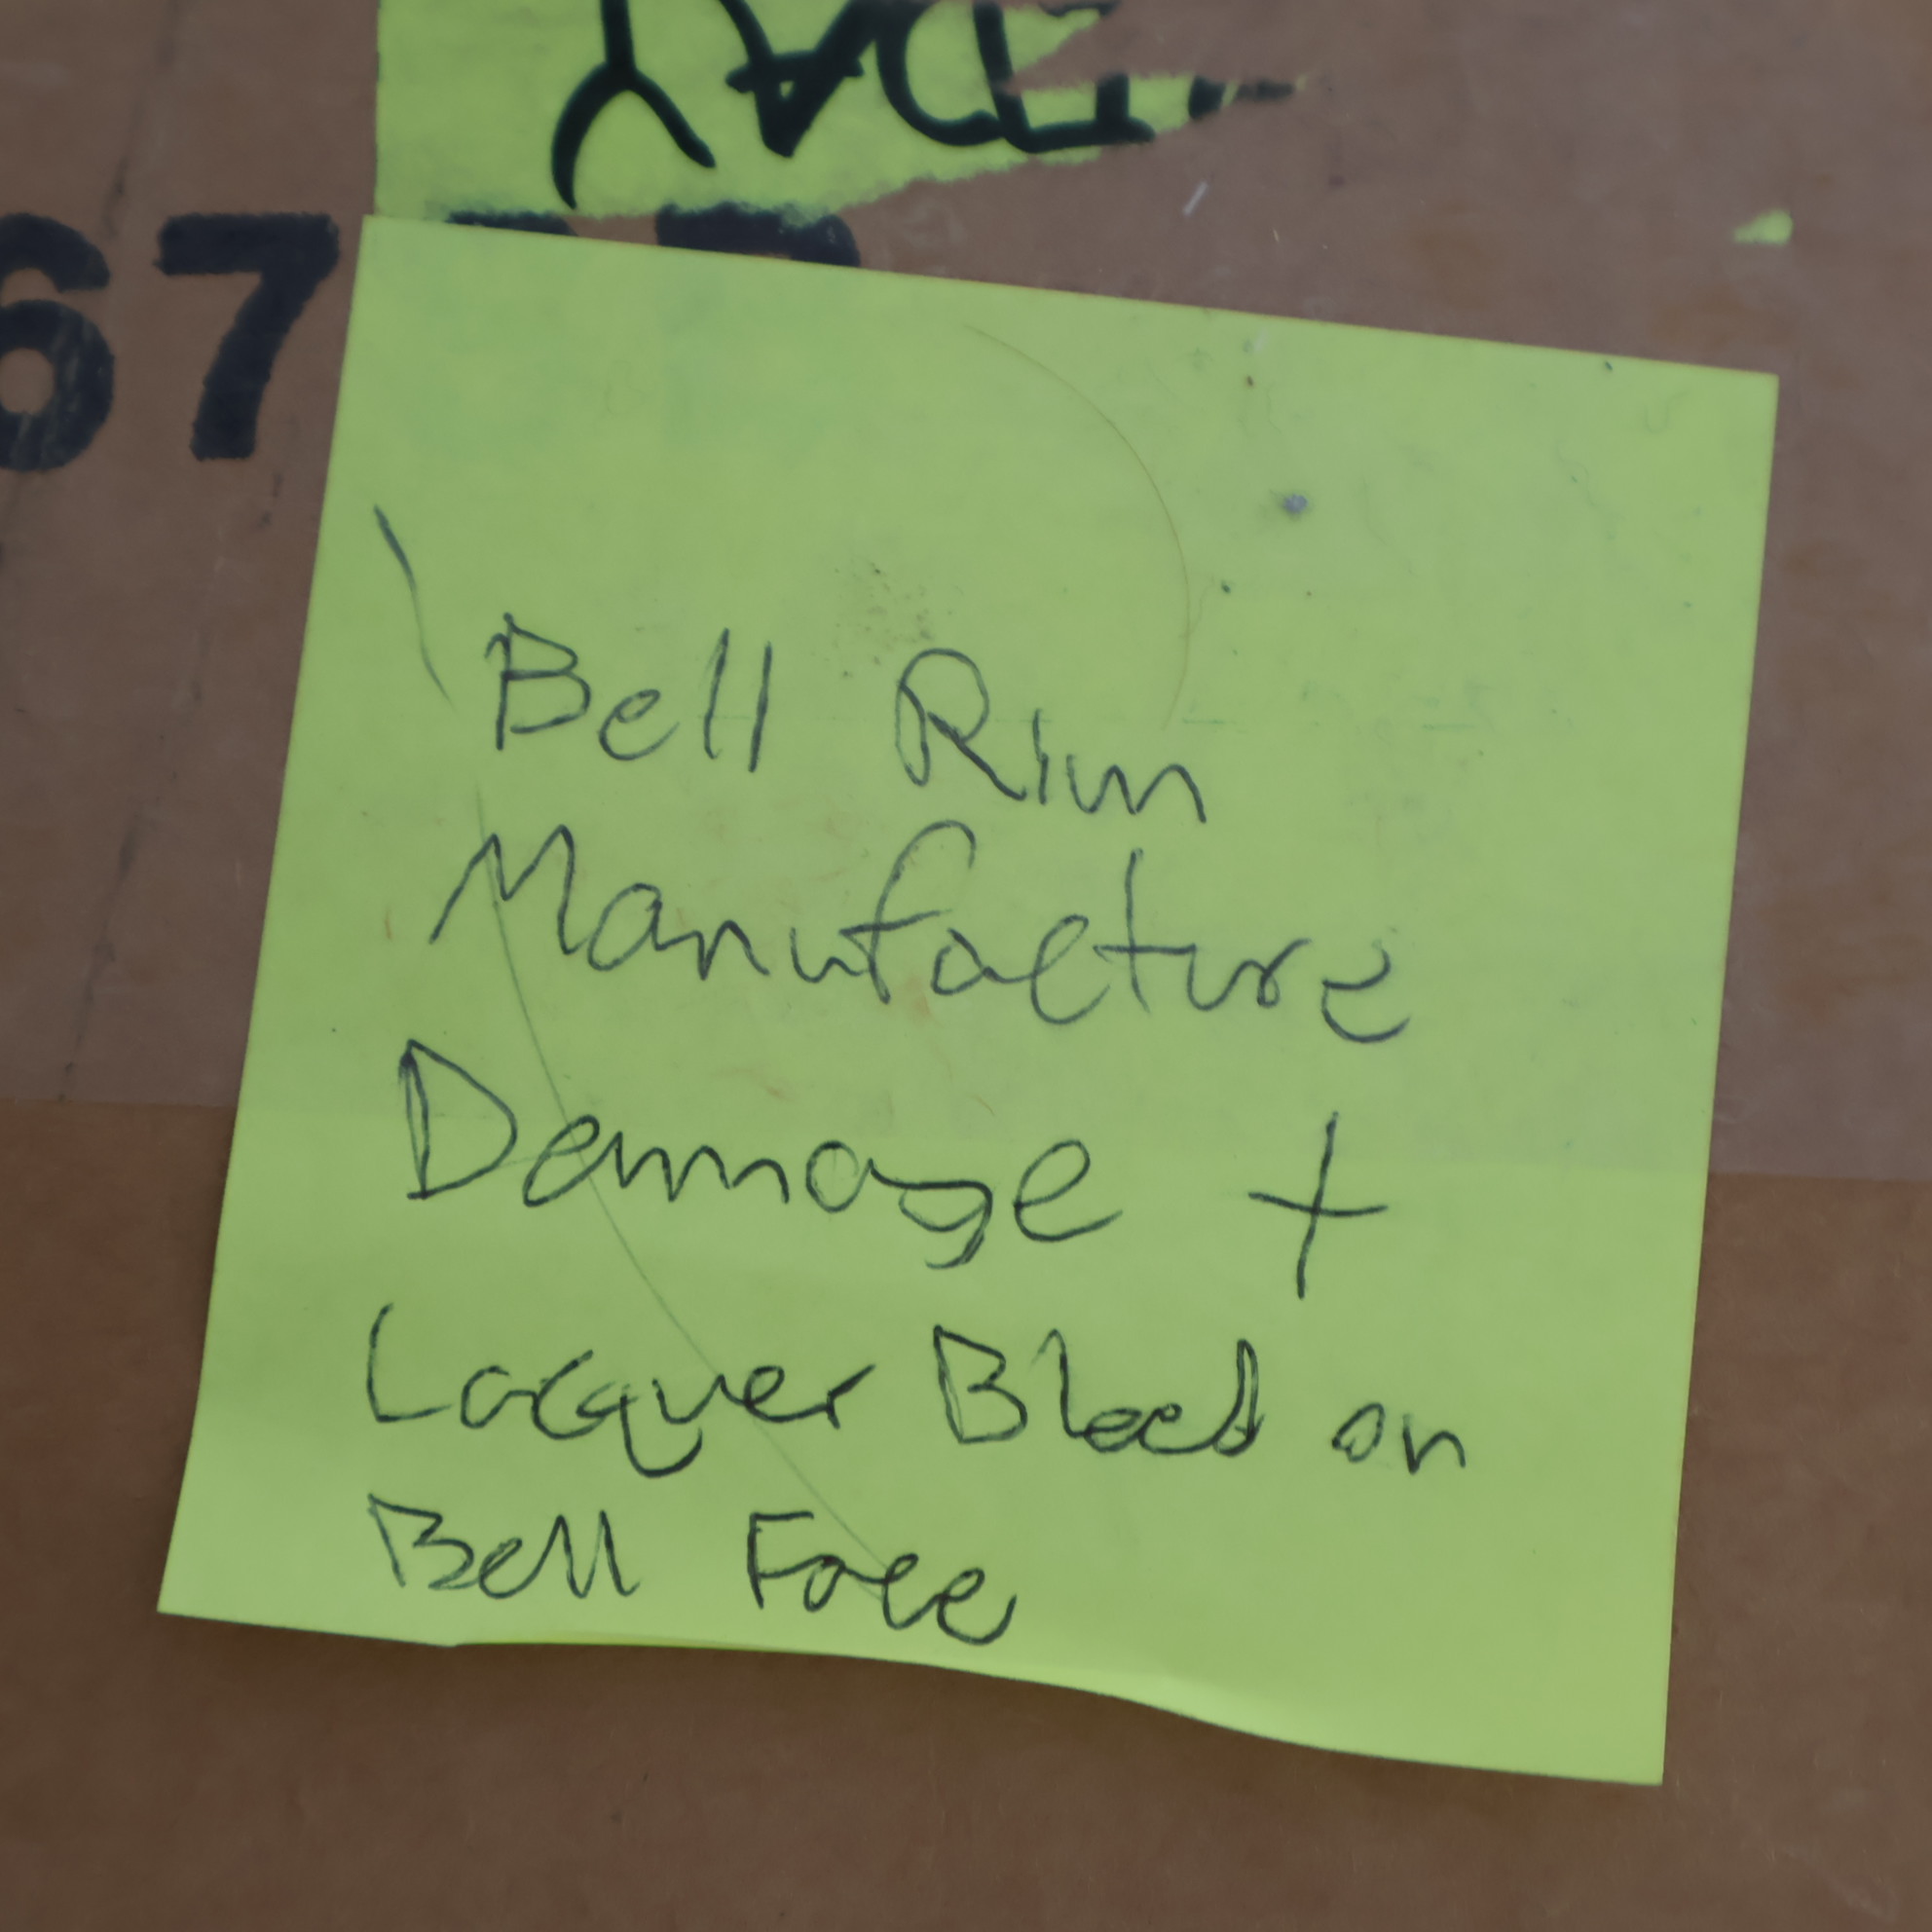 DAY
67
Bell Rim
Manufacture
Demmage +
Lacquer Bleed on
Bell Face